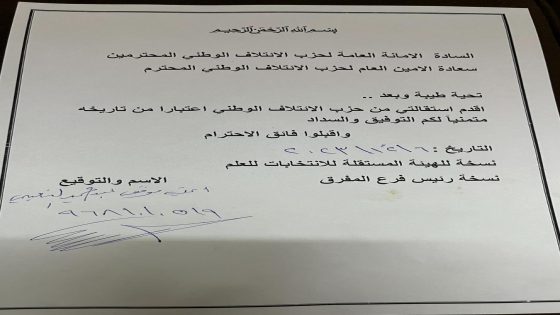 بسم الله الرحمن الرحيم
السادة الامانة العامة لحزب الائتلاف الوطني المحترمين
سعادة الامين العام لحزب الائتلاف الوطني المحترم
تحية طيبة وبعد ..
اقدم استقالتي من حزب الائتلاف الوطني اعتبارا من تاريخه
متمنياً لكم التوفيق والسداد
واقبلوا فائق الاحترام
التاريخ :
نسخة للهيئة المستقلة للانتخابات للعلم
نسخة رئيس فرع المفرق
الاسم والتوقيع
٩٦٨١٠١٠٥١٩